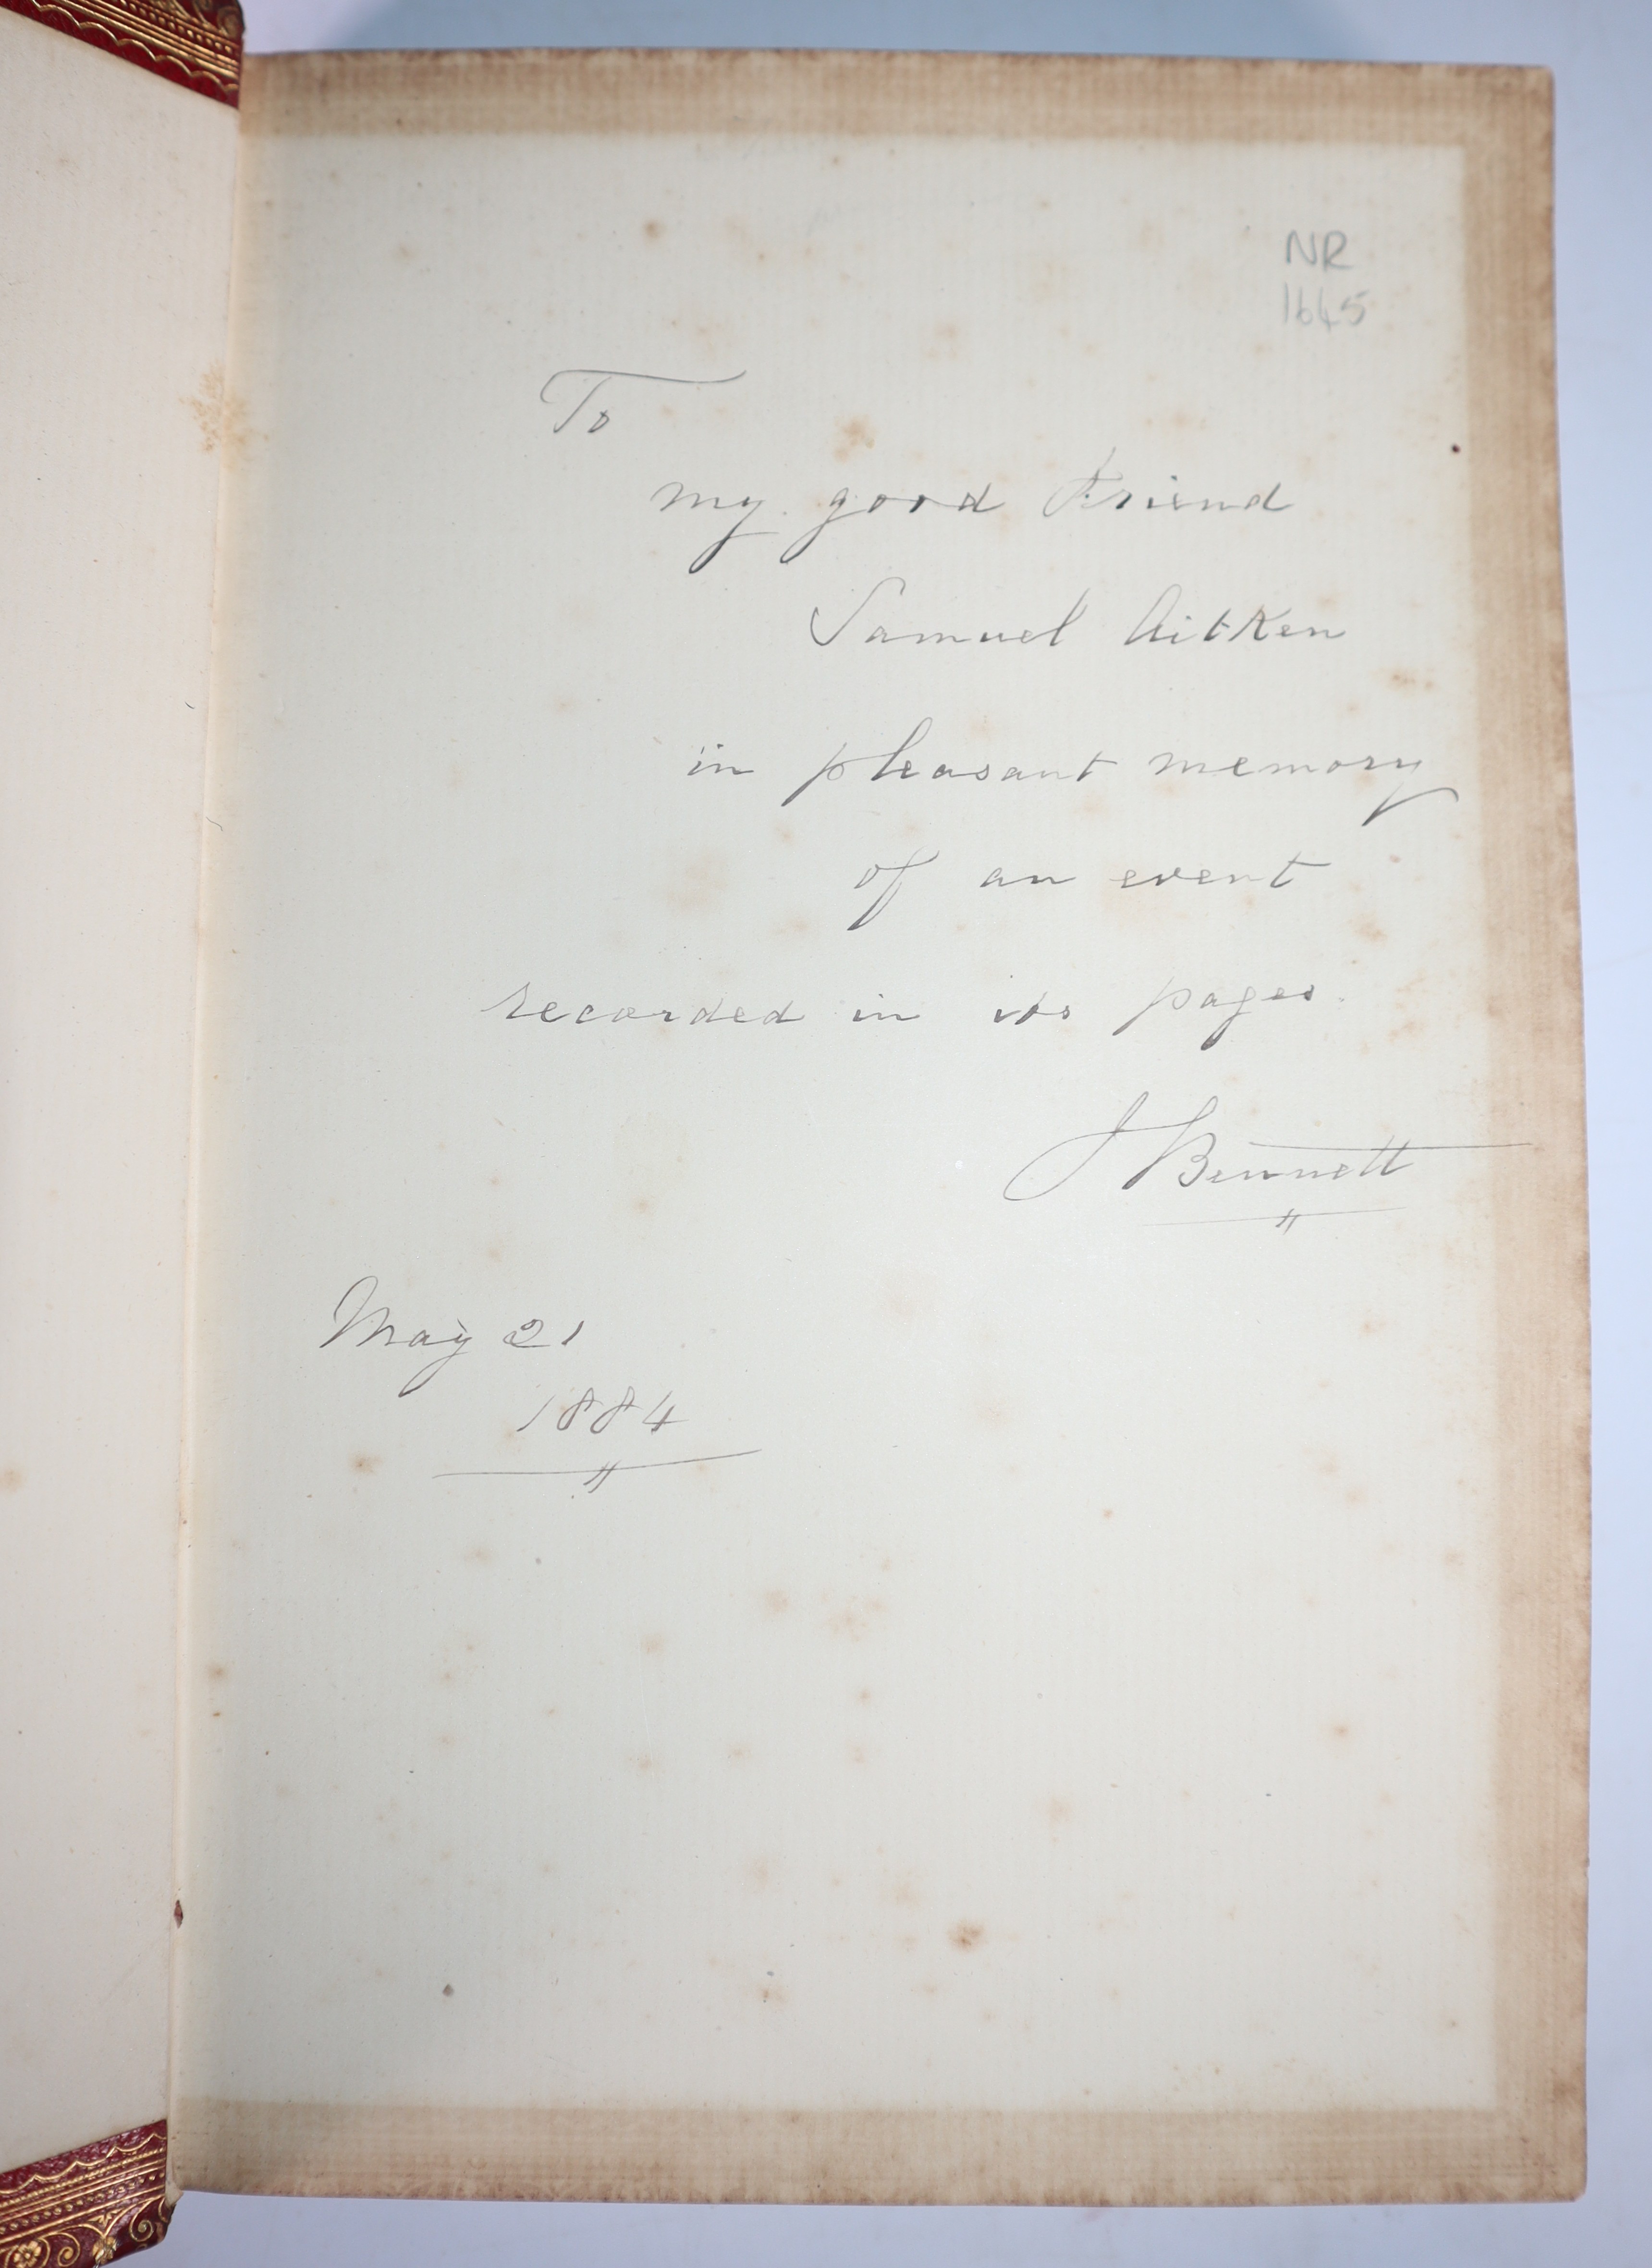 NR
1645
To
my good Friend
Samuel Aitken
in pleasant memory
of an event
recorded in its pages.
J Bennett
May 21
1884